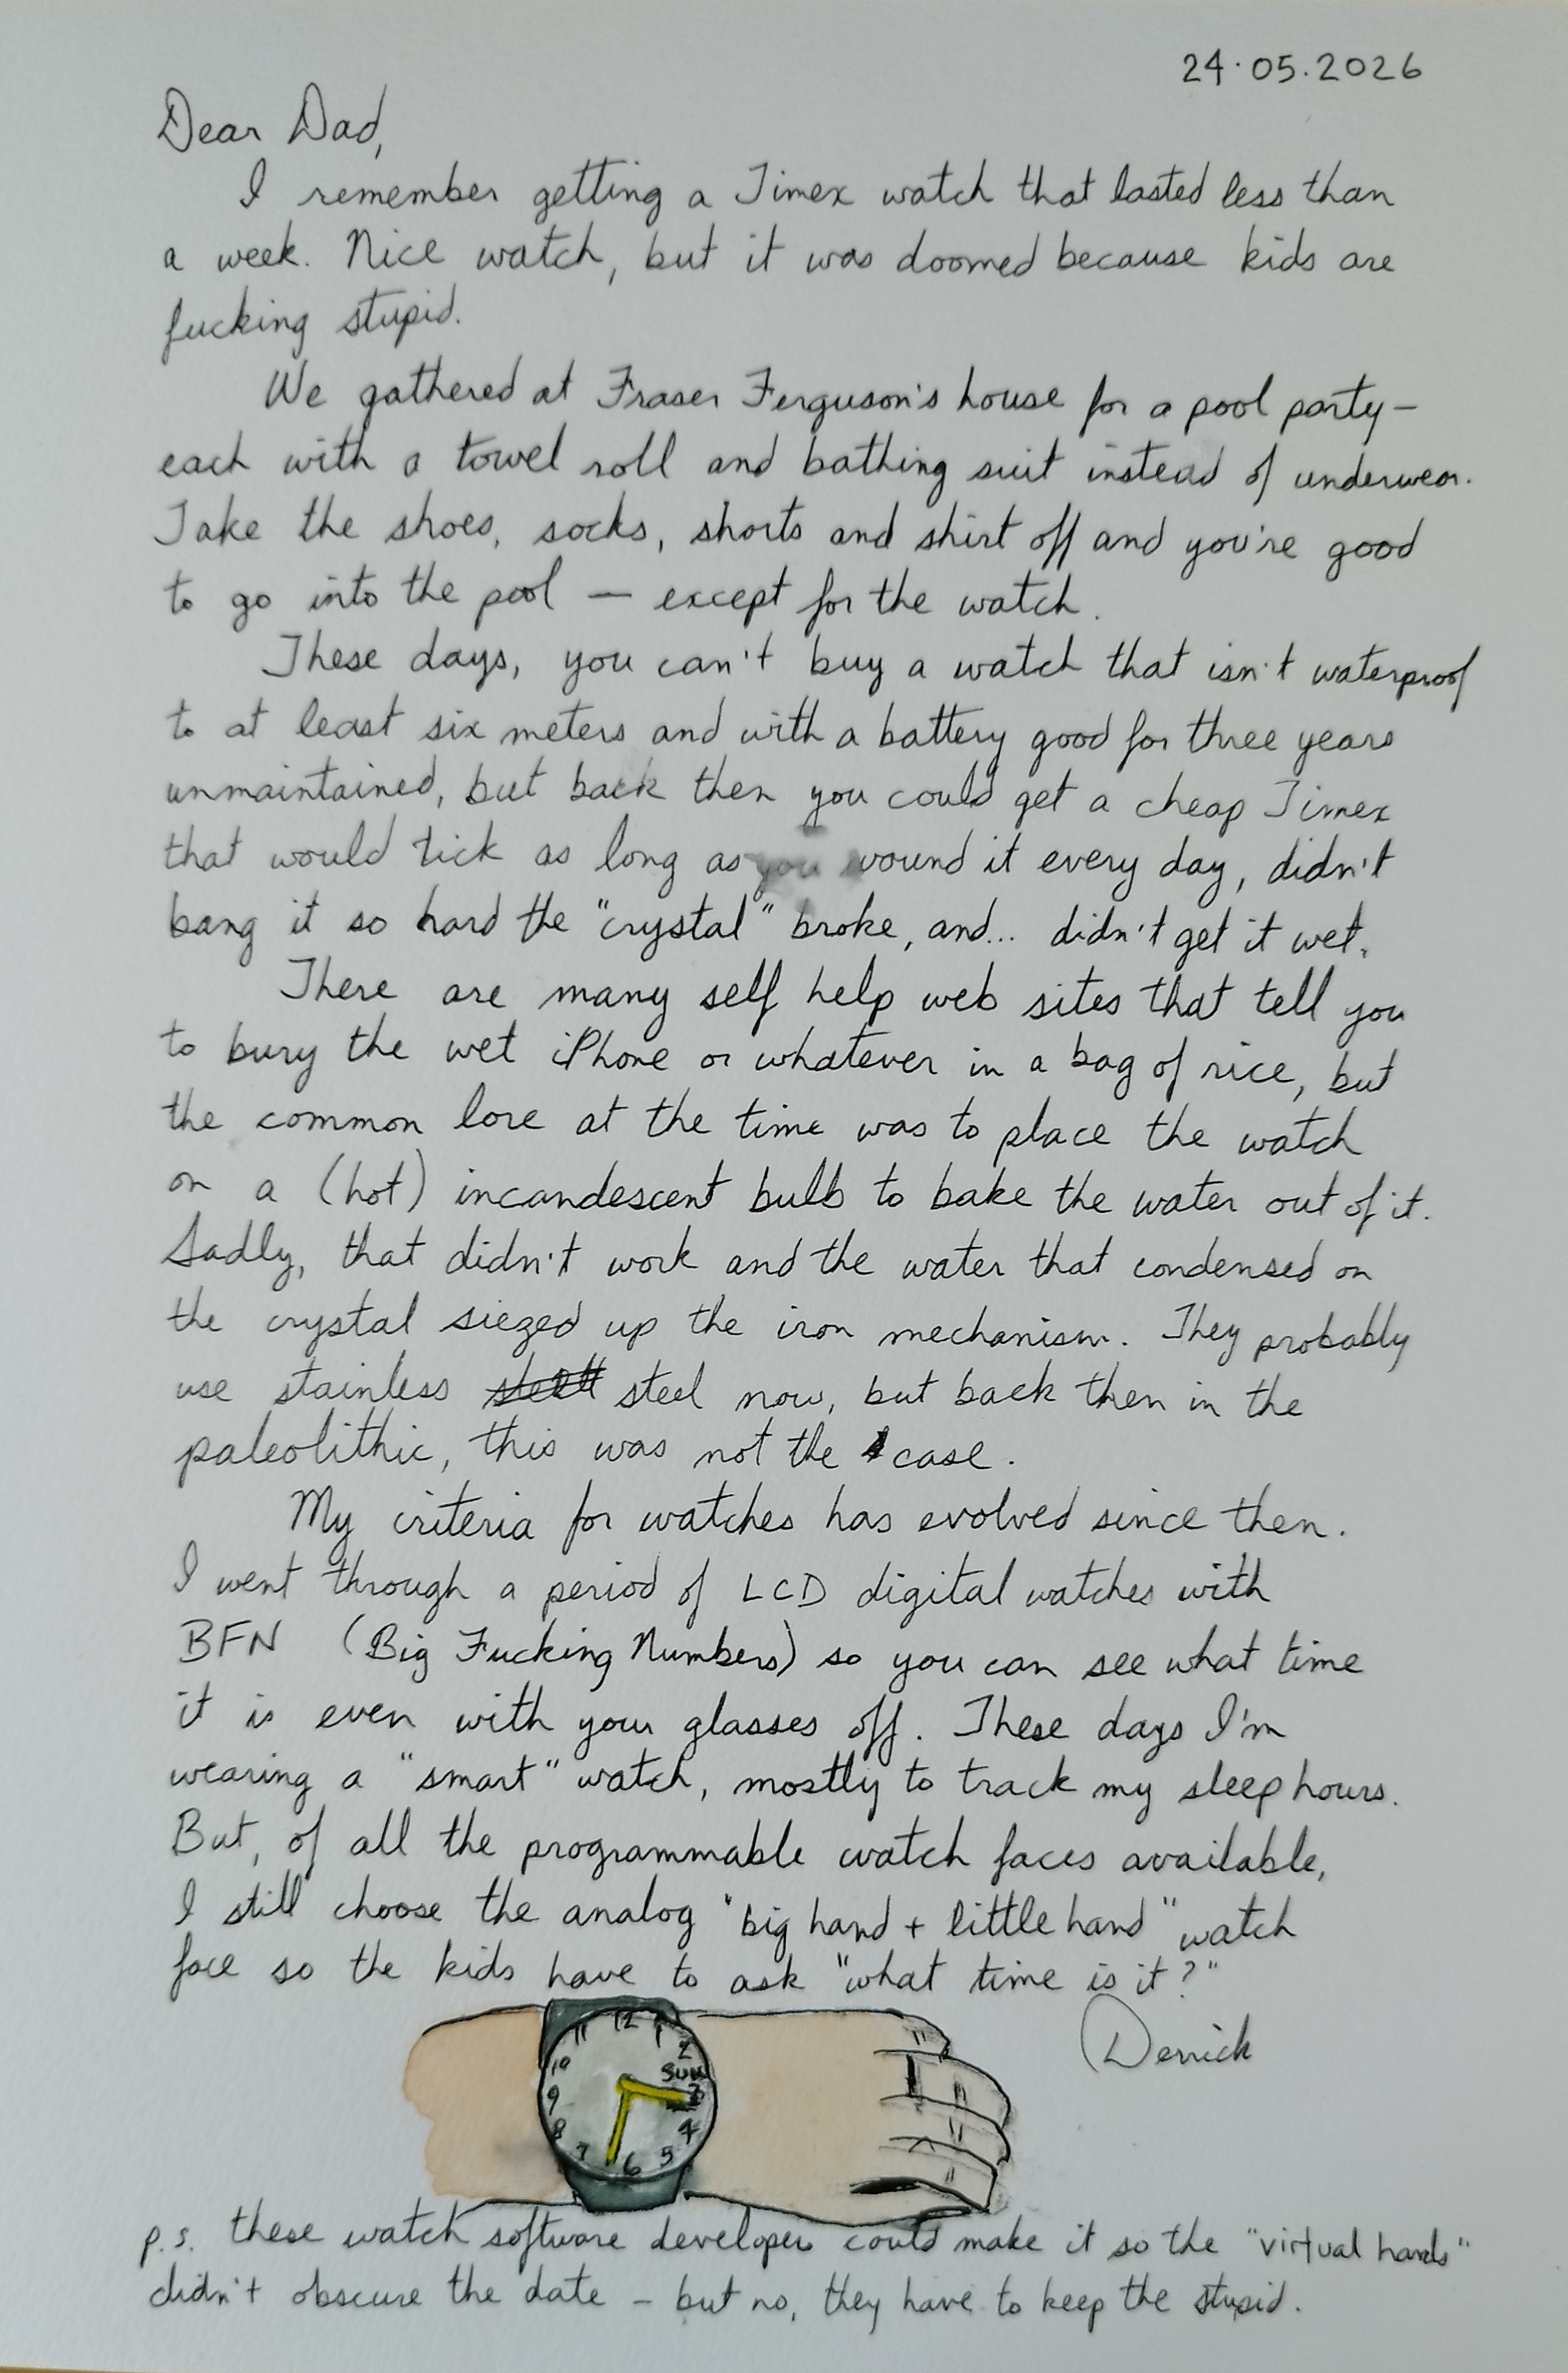 24.05.2026
Dear Dad,
I remember getting a Timex watch that lasted less than
a week. Nice watch, but it was doomed because kids are
fucking stupid.
We gathered at Fraser Ferguson's house for a pool party -
each with a towel roll and bathing suit instead of underwear.
Take the shoes, socks, shorts and shirt off and you're good
to go into the pool — except for the watch.
These days, you can't buy a watch that isn't waterproof
to at least six meters and with a battery good for three years
unmaintained, but back then you could get a cheap Timex
that would tick as long as you wound it every day, didn't
bang it so hard the "crystal" broke, and... didn't get it wet.
There are many self help web sites that tell you
to bury the wet iPhone or whatever in a bag of rice, but
the common lore at the time was to place the watch
on a (hot) incandescent bulb to bake the water out of it.
Sadly, that didn't work and the water that condensed on
the crystal siezed up the iron mechanism. They probably
use stainless steel now, but back then in the
paleolithic, this was not the case.
My criteria for watches has evolved since then.
I went through a period of LCD digital watches with
BFN (Big Fucking Numbers) so you can see what time
it is even with your glasses off. These days I'm
wearing a "smart" watch, mostly to track my sleep hours.
But, of all the programmable watch faces available,
I still choose the analog "big hand + little hand" watch
face so the kids have to ask "what time is it?"
Derrick
12
11 1
10 2
SUN
9 3
8 4
7 5
6
p.s. these watch software developers could make it so the "virtual hands"
didn't obscure the date - but no, they have to keep the stupid.